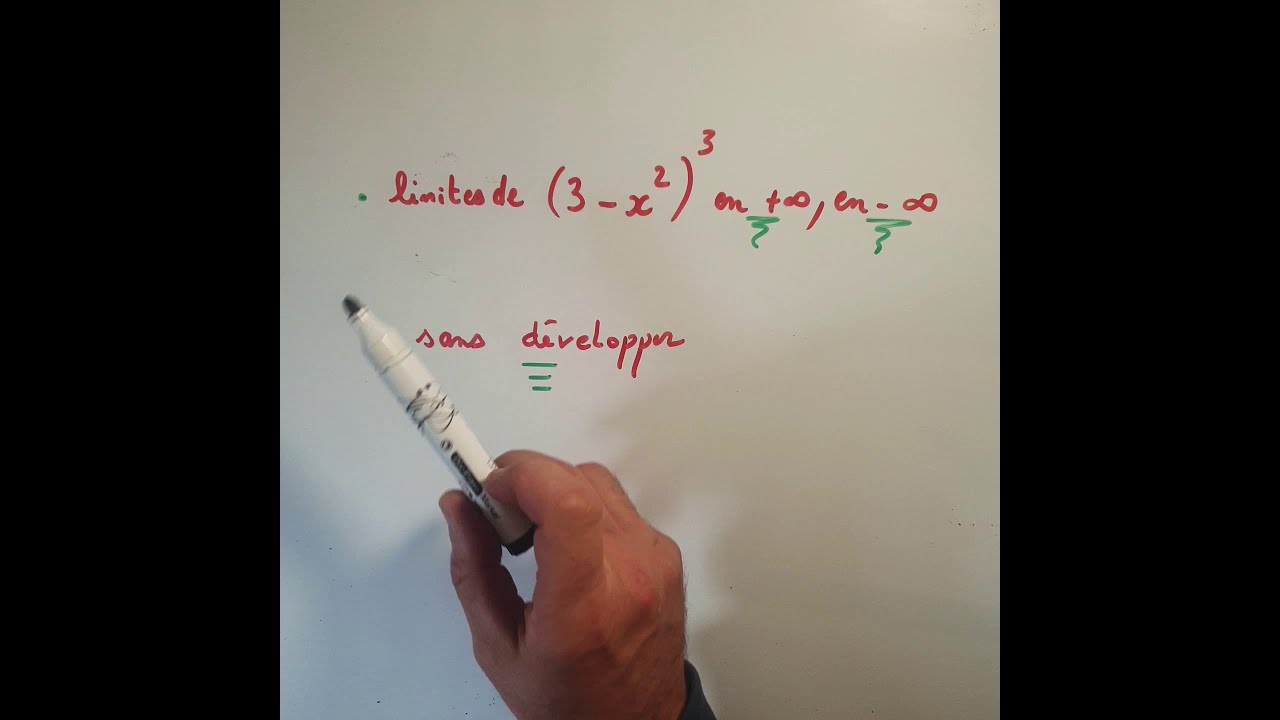 . limites de (3 - x²)³ en +∞, en - ∞
sans développer